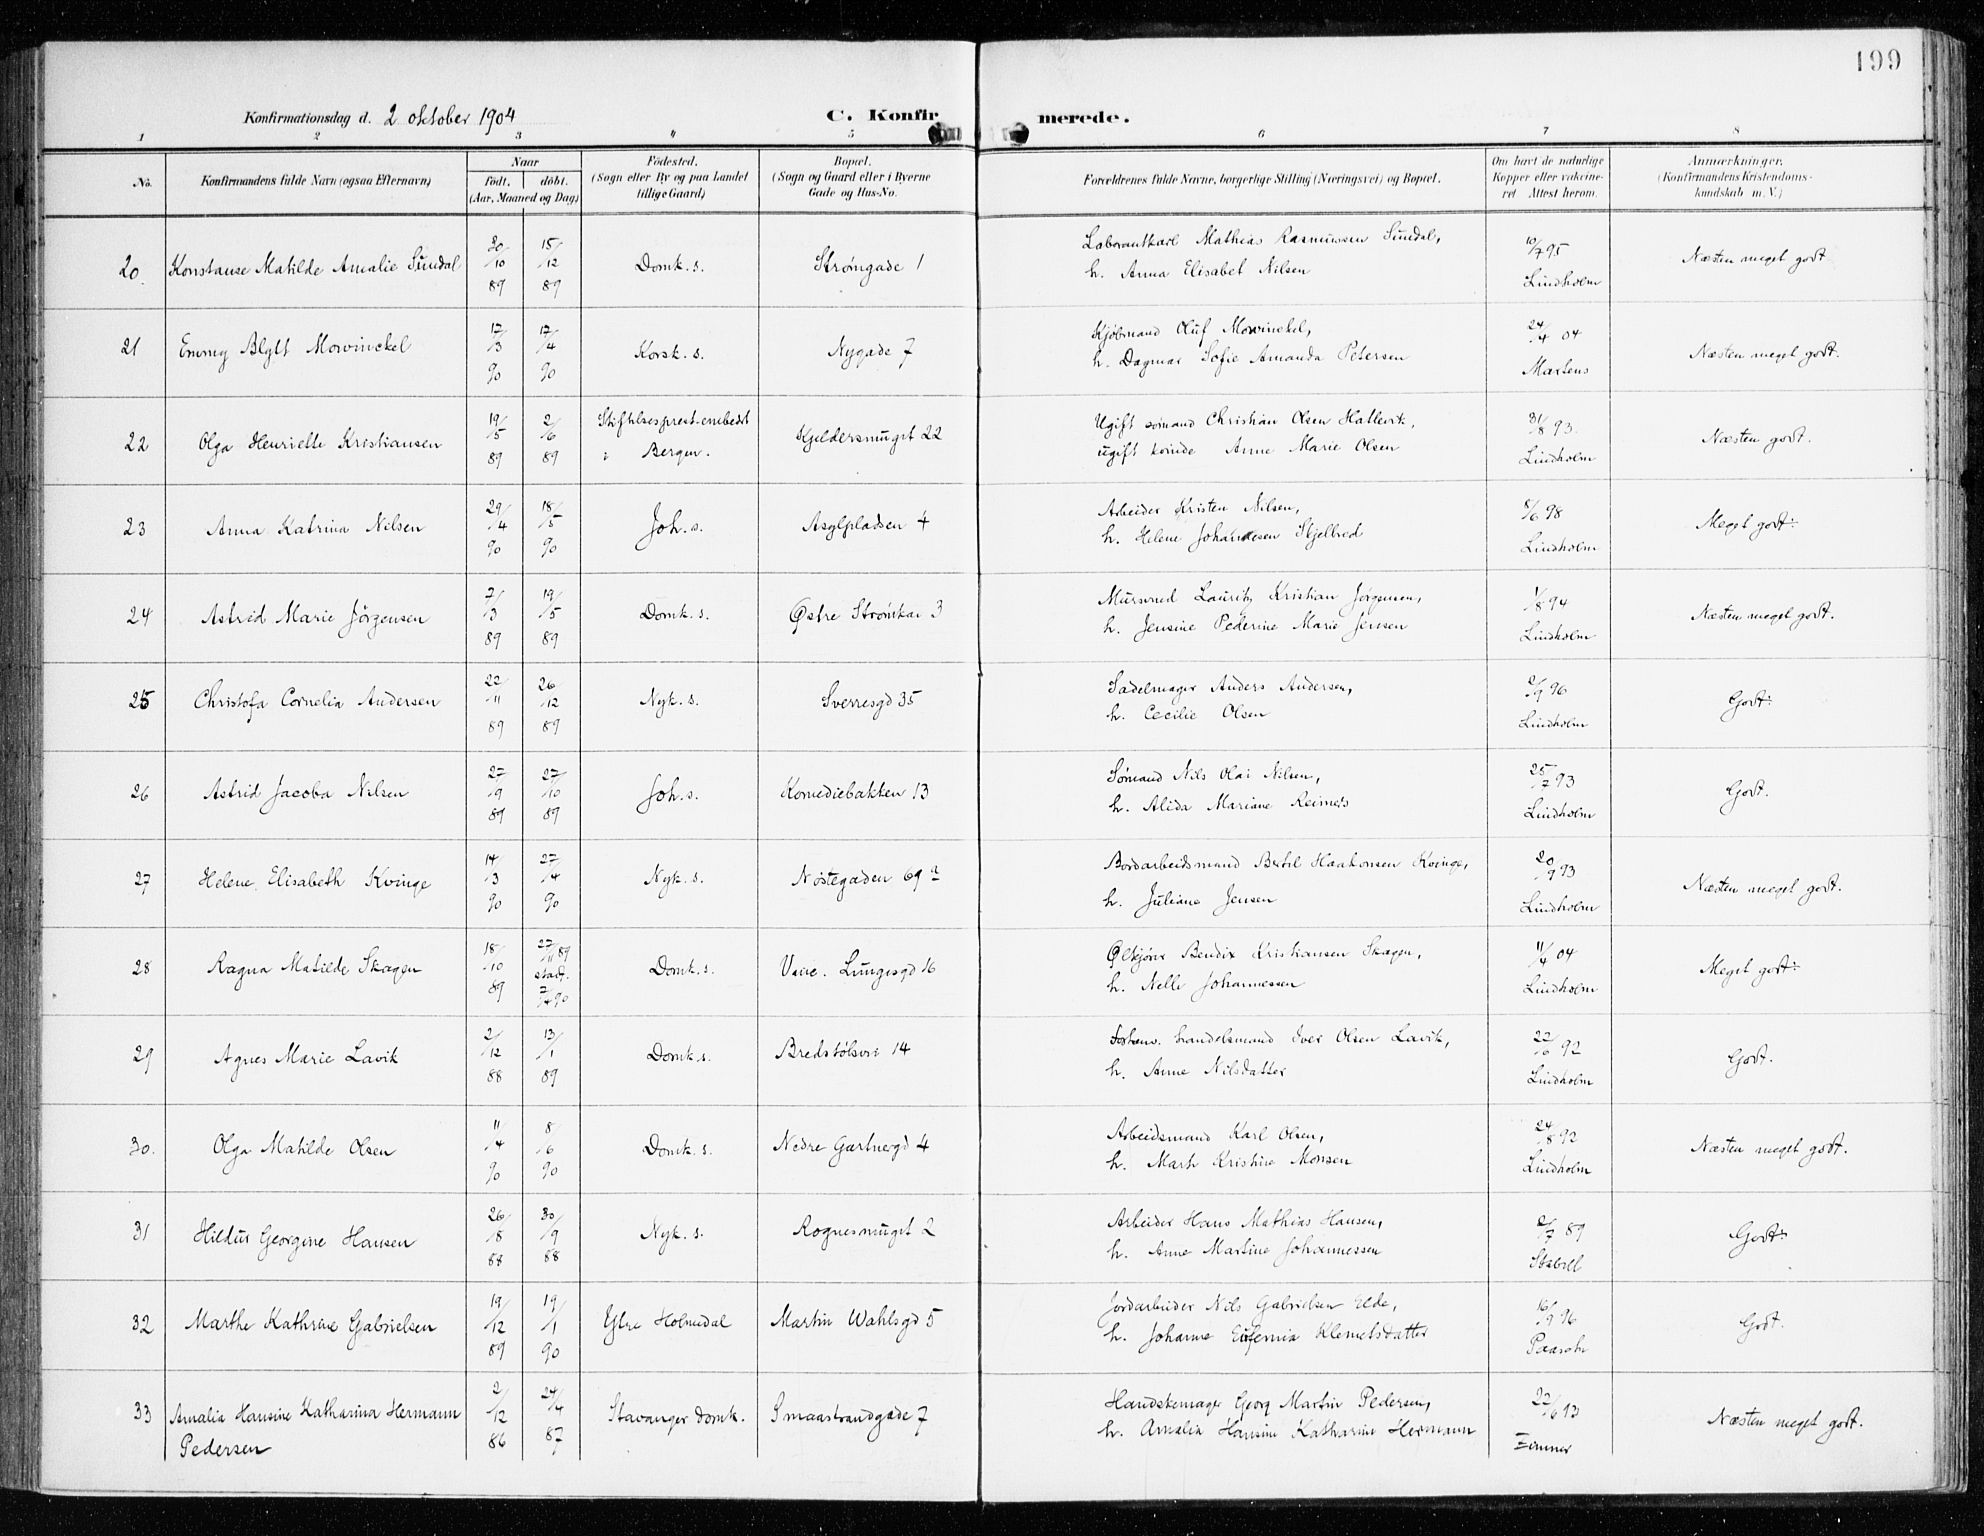 199
Konfirmationsdag d. 2 oktober 1904
C. Konfirmerede.
1 2 3 4 5 6 7 8
No. Konfirmandens fulde Navn (ogsaa Efternavn) Naar födt. döbt. (Aar, Maaned og Dag) Födested. (Sogn eller By og paa Landet tillige Gaard) Bopæl. (Sogn og Gaard eller i Byerne Gade og Hus-No. Forældrenes fulde Navne, borgerlige Stilling (Næringsvei) og Bopæl. Om havt de naturlige Kopper eller vaccineret Attest herom. Anmærkninger. (Konfirmandens Kristendomskundskab m. V.)
20. Konstanse Matilde Amalie Sundal 20/10 89 15/12 89 Domk. s. Strømgade 1 Mathias Rasmussen Sundal, 10/7 95 Næsten meget godt
h. Anna Elisabet Nilsen Lindholm
21 Emmy Blytt Mowinckel 17/3 90 17/4 90 Korsk. s. Nygade 7 Kjøbmand Oluf Mowinckel, 24/4 04 Næsten meget godt.
h. Dagmar Sofie Amanda Petersen Martens
22 Olga Henriette Kristiansen 19/5 89 2/6 89 Stiftelsesprest-embedet i Bergen. Kjeldersmuget 22 Ugift sømand Christian Olsen Hatlevik, 31/8 93. Næsten godt.
ugift kvinde Anne Marie Olsen Lindholm
23 Anna Katrina Nilsen 29/4 90 18/5 90 Joh. s. Asylpladsen 4 Arbeider Kristen Nilsen, 8/6 98 Meget godt
h. Helene Johannesen Skjelbred Lindholm
24 Astrid Marie Jörgensen 7/3 89 19/5 89 Domk. s. Østre Strømkai 3 Mursvend Lauritz Kristian Jørgensen, 1/8 94 Næsten meget godt.
h. Jensine Pederine Marie Jensen Lindholm
25 Christofa Cornelia Andersen 22/11 89 26/12 89 Nyk. s. Sverresgd 35 Sadelmager Anders Andersen, 2/9 96 Godt
h. Cecilie Olsen Lindholm
26 Astrid Jacoba Nilsen 27/9 89 27/10 89 Joh. s. Komediebakken 13 Sømand Nils Olai Nilsen, 25/7 93 Godt.
h. Alida Mariane Reimers Lindholm
27 Helene Elisabeth Kvinge 14/3 90 27/4 90 Nyk. s. Nøstegaden 69 Bordarbeidsmand Bertel Haakonsen Kvinge, 20/9 93 Næsten meget godt.
h. Juliane Jensen Lindholm
28 Ragna Matilde Skagen 18/10 89 27/11 89 stadf. 7/4 90 Domk. s. Lungesgd 16 Ølkjører Bendix Kristiansen Skagen, 11/4 04 Meget godt
h. Nelle Johannessen Lindholm
29 Agnes Marie Lavik 2/12 88 13/1 89 Domk. s. Bredstølsvei 14 handelsmand Iver Olsen Lavik, 22/6 92 Godt.
h. Anne Nilsdatter Lindholm
30. Olga Matilde Olsen 11/4 90 8/6 90 Domk. s. Nedre Gartnergd 4 Arbeidsmand Karl Olsen, 24/8 92 Næsten meget godt.
h. Marth Kristine Monsen Lindholm
31 Hildur Georgine Hansen 26/8 88 30/9 88 Nyk. s. Rognesmuget 2 Arbeider Hans Mathias Hansen, 2/7 89 Godt
h. Anne Martine Johannessen Stabell
32 Marthe Kathrine Gabrielsen 19/12 89 19/1 90 Ytre Holmedal Martin Wahlsgd 5 Jordarbeider Nils Gabrielsen Elde, 16/9 96 Godt.
h. Johanne Eufemia Klemetsdatter Paasche
33 Amalia Hansine Katharina Hermann 2/12 86 24/4 87 Stavanger Domk. Smaastrandgade 7 Handskemager Georg Martin Pedersen, 22/6 93 Næsten meget godt.
Pedersen h. Amalia Hansine Katharine Hermann Zimmer